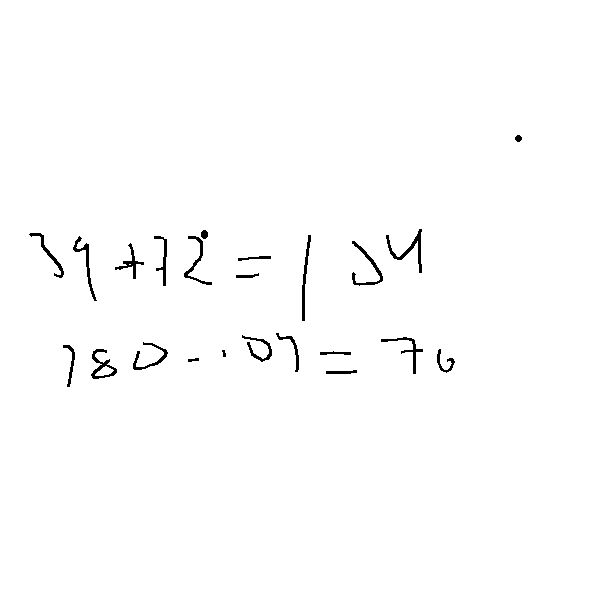 39+72=104
180-107=76